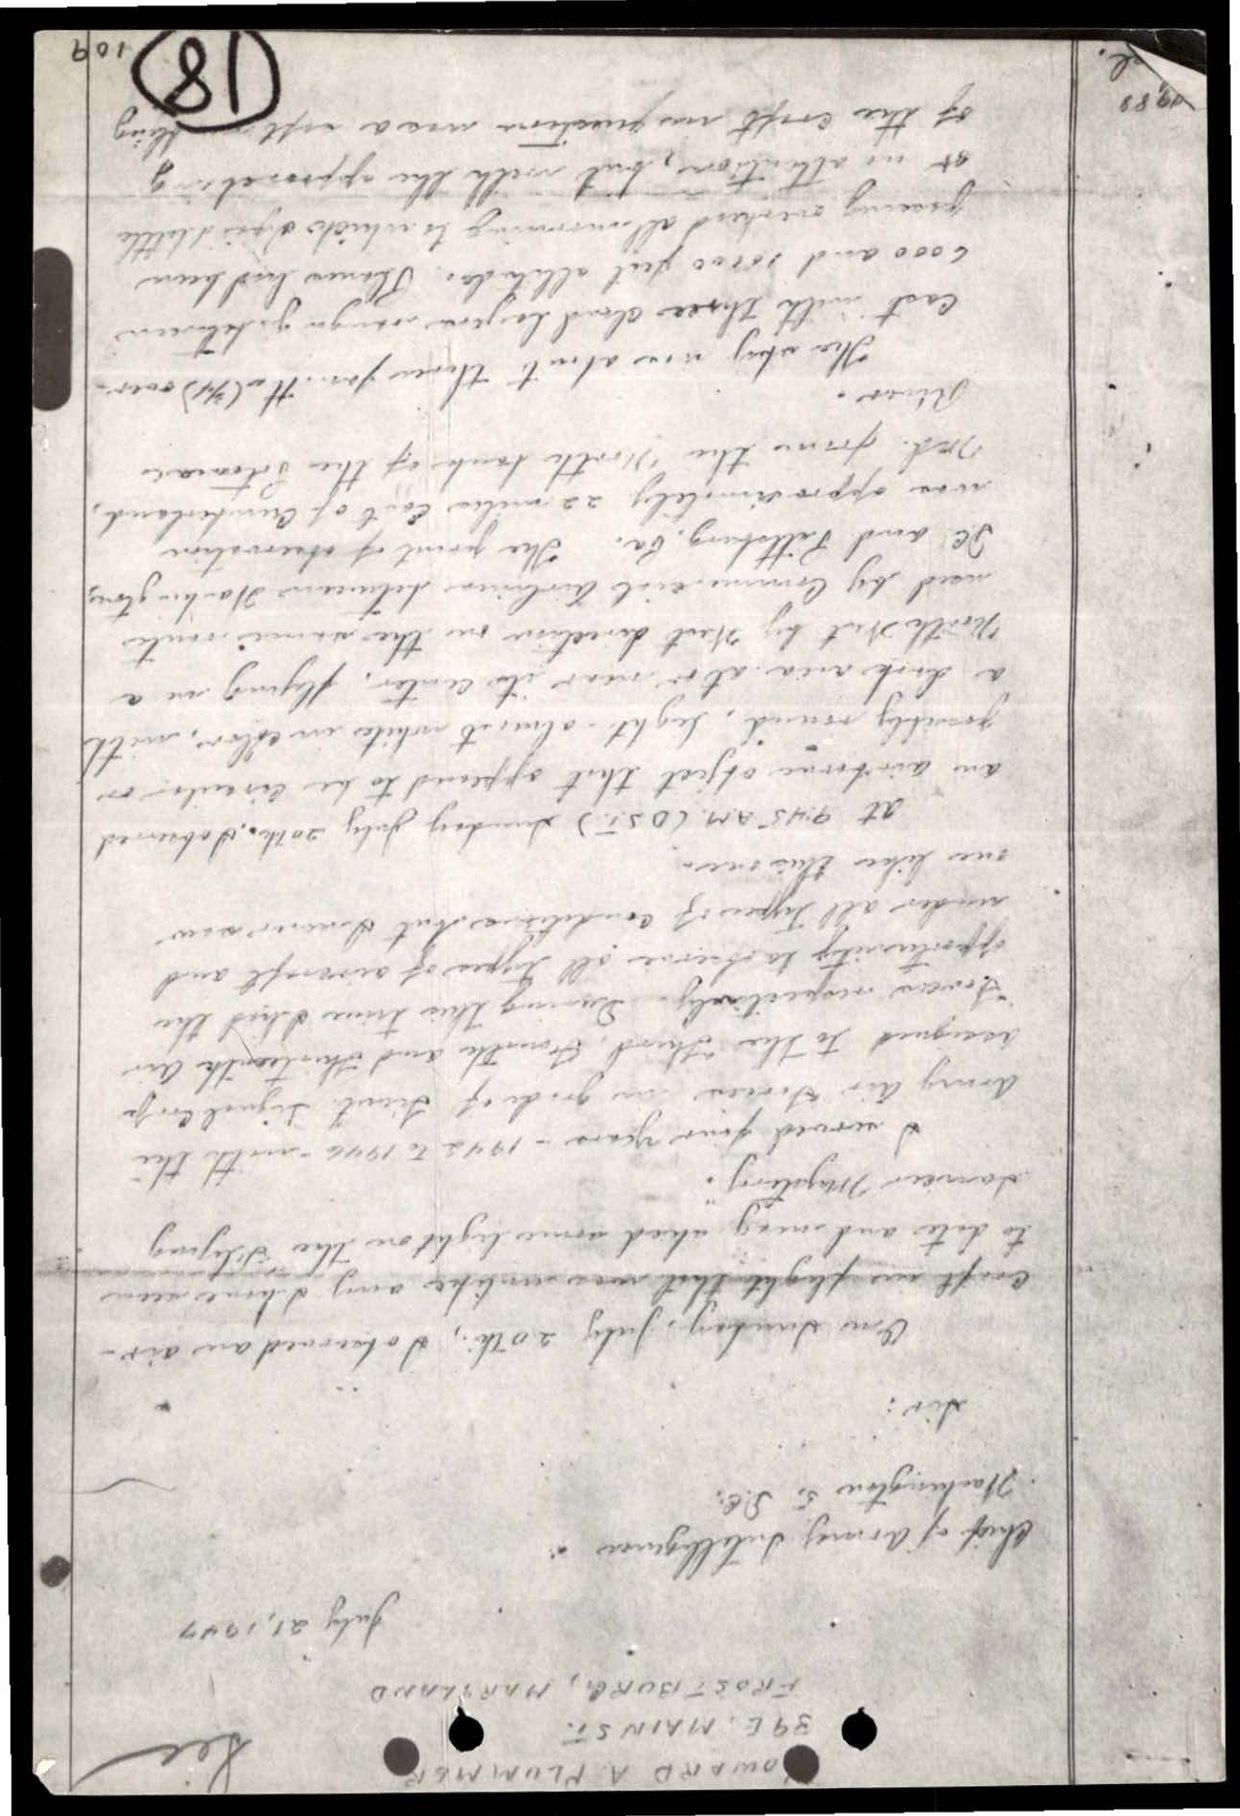 HOWARD A. PLUMMER
39 E. MAIN ST.
FROSTBURG, MARYLAND
July 21, 1947
Chief of Army Intelligence
Washington 5, D.C.
Sir:
On Sunday, July 20th., I observed an air-
craft in flight that was unlike any I have seen
to date and may shed some light on the "Flying
Saucer Mystery".
I served four years - 1942 to 1946 - with the
Army Air Forces in grade of Lieut. Signal Corps
assigned to the Third, Fourth and Thirteenth Air
Forces respectively. During this time I had the
opportunity to observe all types of aircraft and
under all types of conditions but I never saw
one like this one.
At 9:45 A.M. (D.S.T.) Sunday July 20th. I observed
an airborne object that appeared to be circular or
possibly round, light - almost white in color, with
a dark area at or near its center, flying in a
North West by West direction on the same route
used by Commercial Airlines between Washington,
D.C. and Pittsburg, Pa. The point of observation
was approximately 22 miles East of Cumberland,
Md. from the North bank of the Potomac
River.
The sky was about three fourths (3/4) over-
cast with three cloud layers ranging between
6000 and 10000 feet altitude. Planes had been
passing overhead all morning to which I paid little
or no attention, but with the approaching
of the craft in question was a soft
18
109